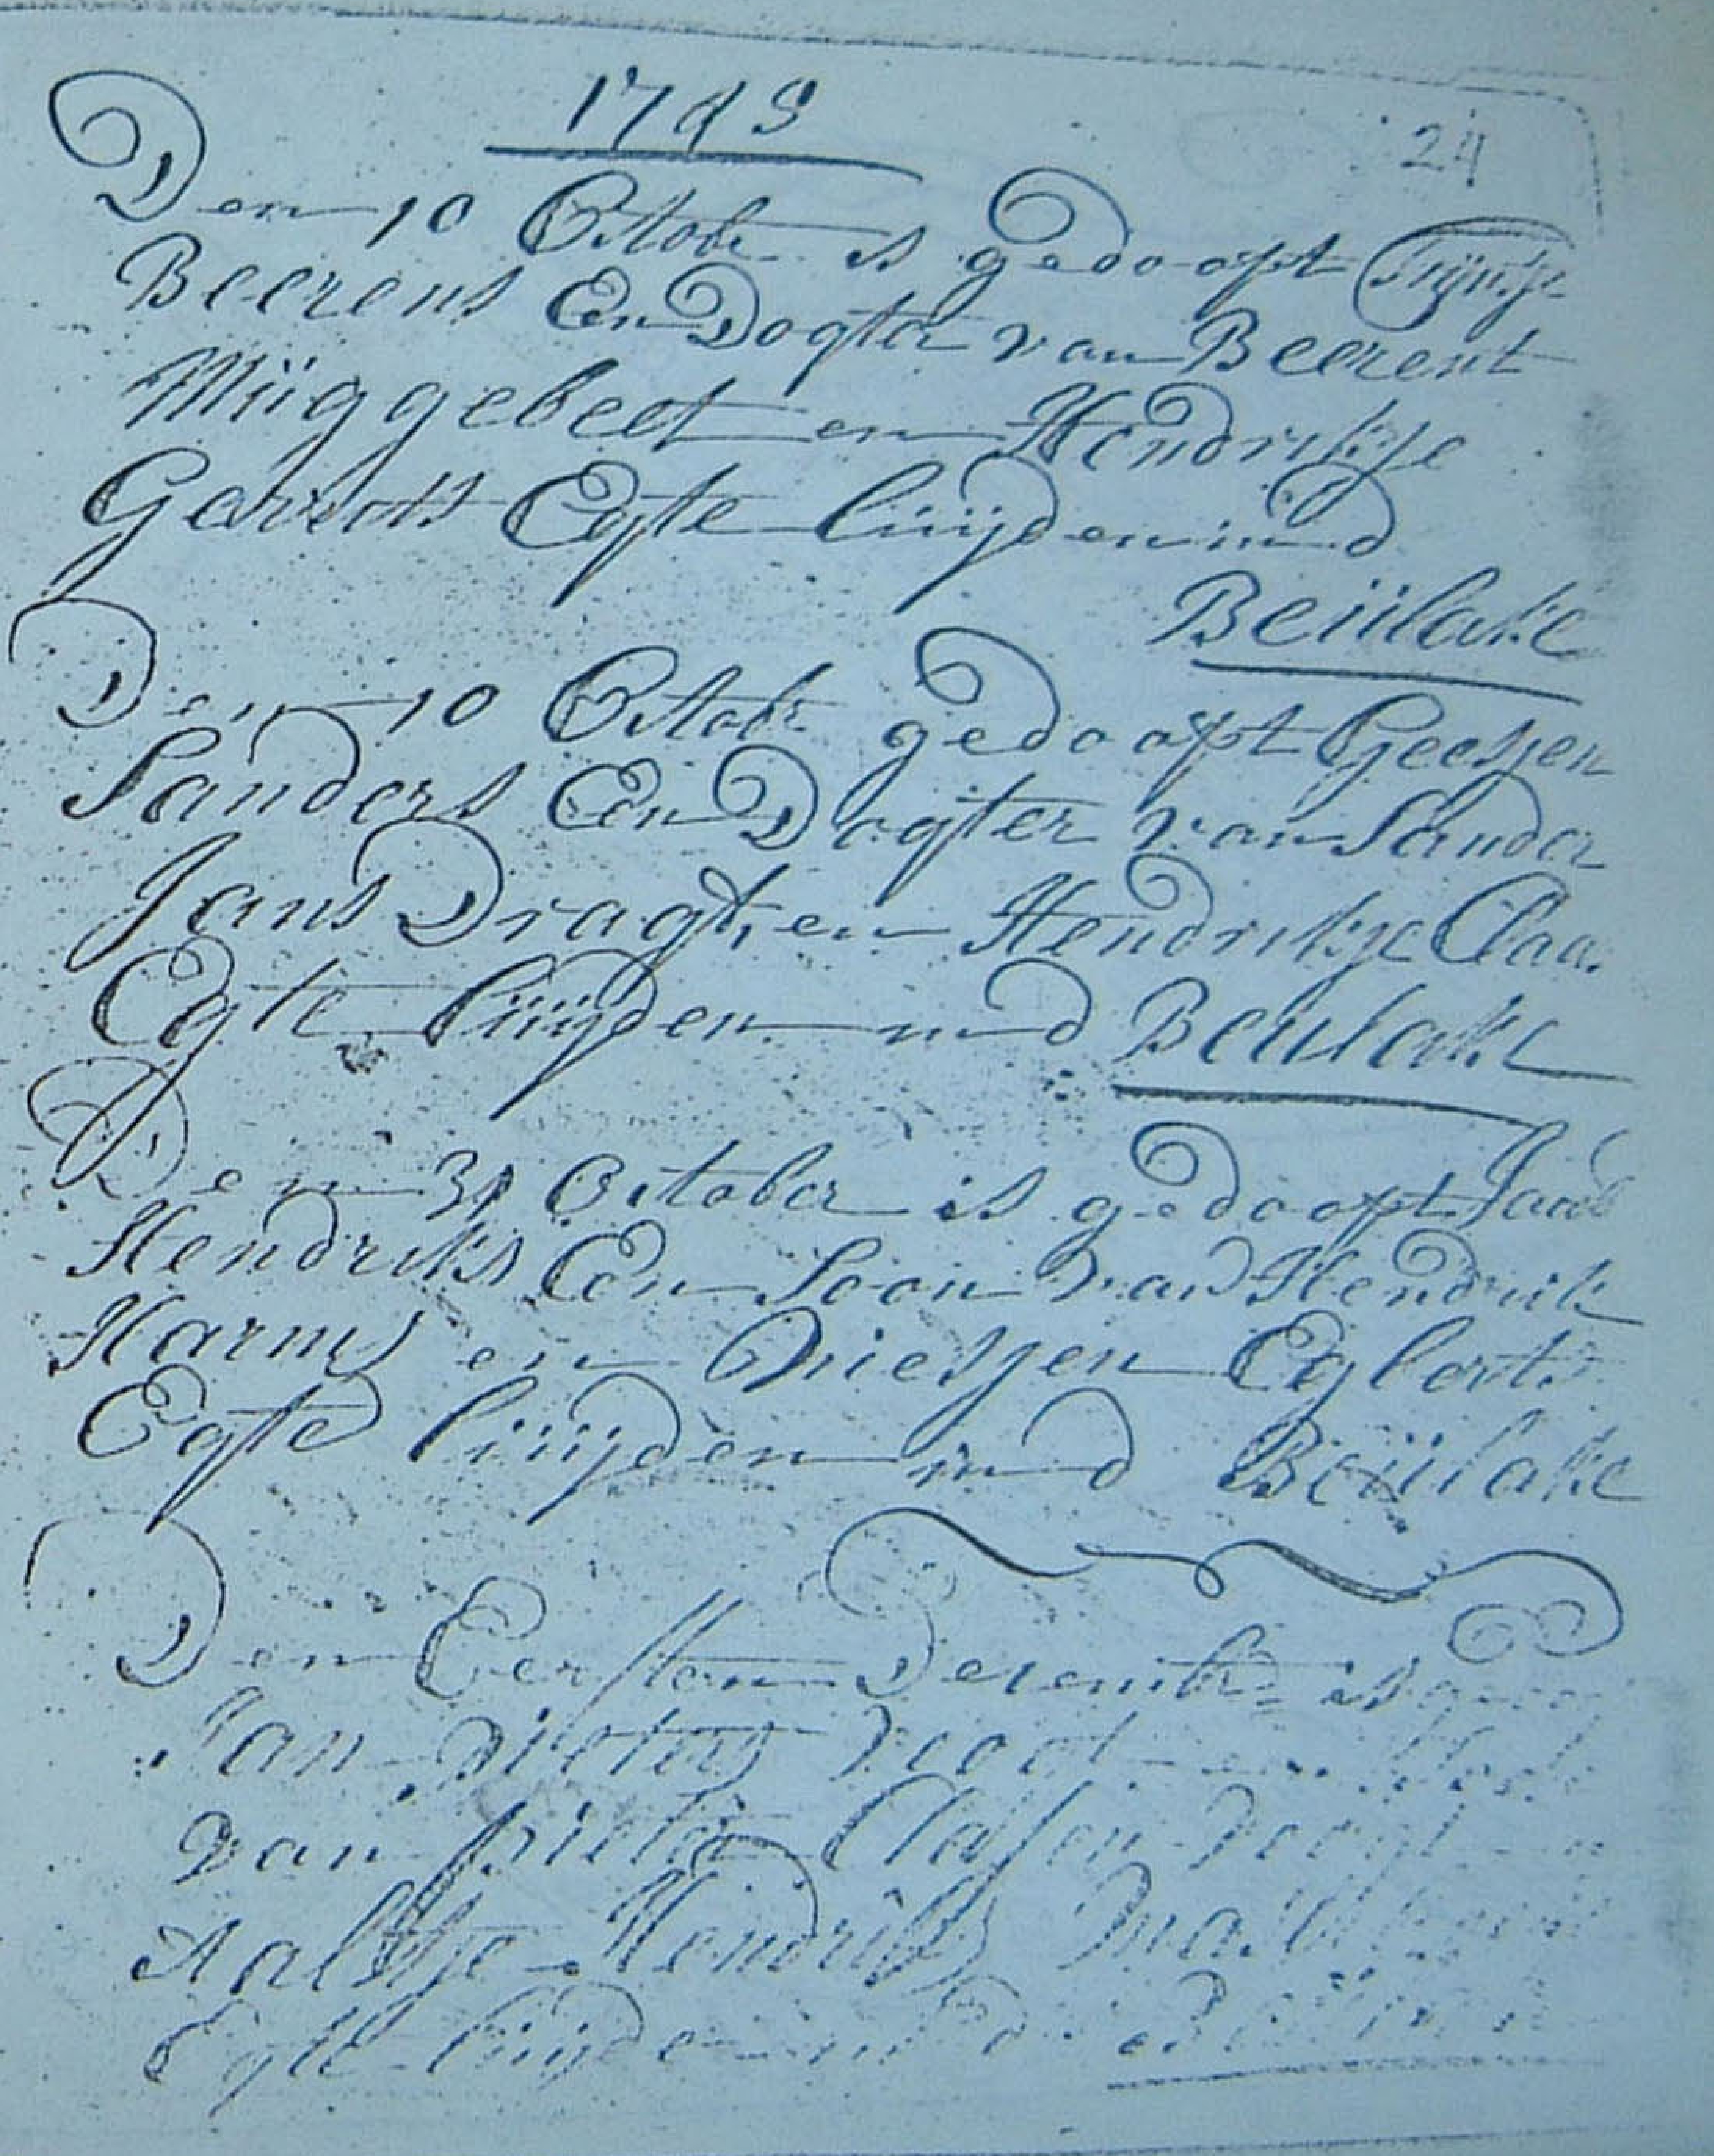 1743
24
Den 10 Octobr is gedoopt Trijntje
Beerens Een Dogter van Beerent
Müggebeet en Hendrikje
Gerrits Egte lüijden in d
Beülake
Den 10 Octobr gedoopt Geesjen
Sanders Een Dogter van Sander
Jans Dragt, en Hendrikje Claa
Egte lüijden in d Beulake
Den 31 October is gedoopt
Hendriks Een Soon van Hendrik
Harms en Niesjen Egberts
Egte lüijden in d Beülake
Den Eersten Decembr is
Jan Pieters
van Pieter Classen
Aaltje Hendriks
Egte lüijden in d